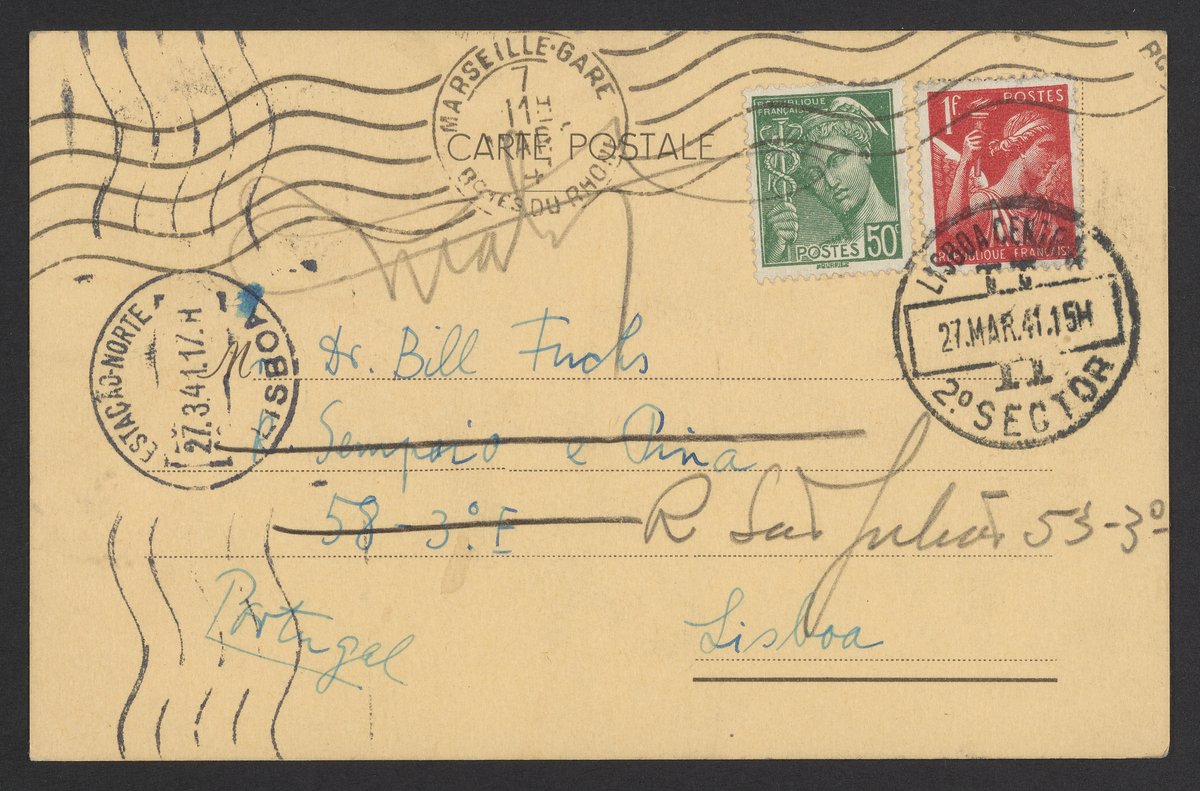 MARSEILLE-GARE
7
11
BCHES DU RHONE
CARTE POSTALE
REPUBLIQUE
FRANÇAISE
POSTES 50c
1F POSTES
REPUBLIQUE FRANÇAISE
LISBOA CENTRAL
27.MAR.41.15H
2º SECTOR
ESTAÇÃO-NORTE
27.3.41.17.H
LISBOA
Mr Dr. Bill Fuchs
R. Sempaio e Pina
58-3º E
R São Julião 53-3º
Portugal
Lisboa